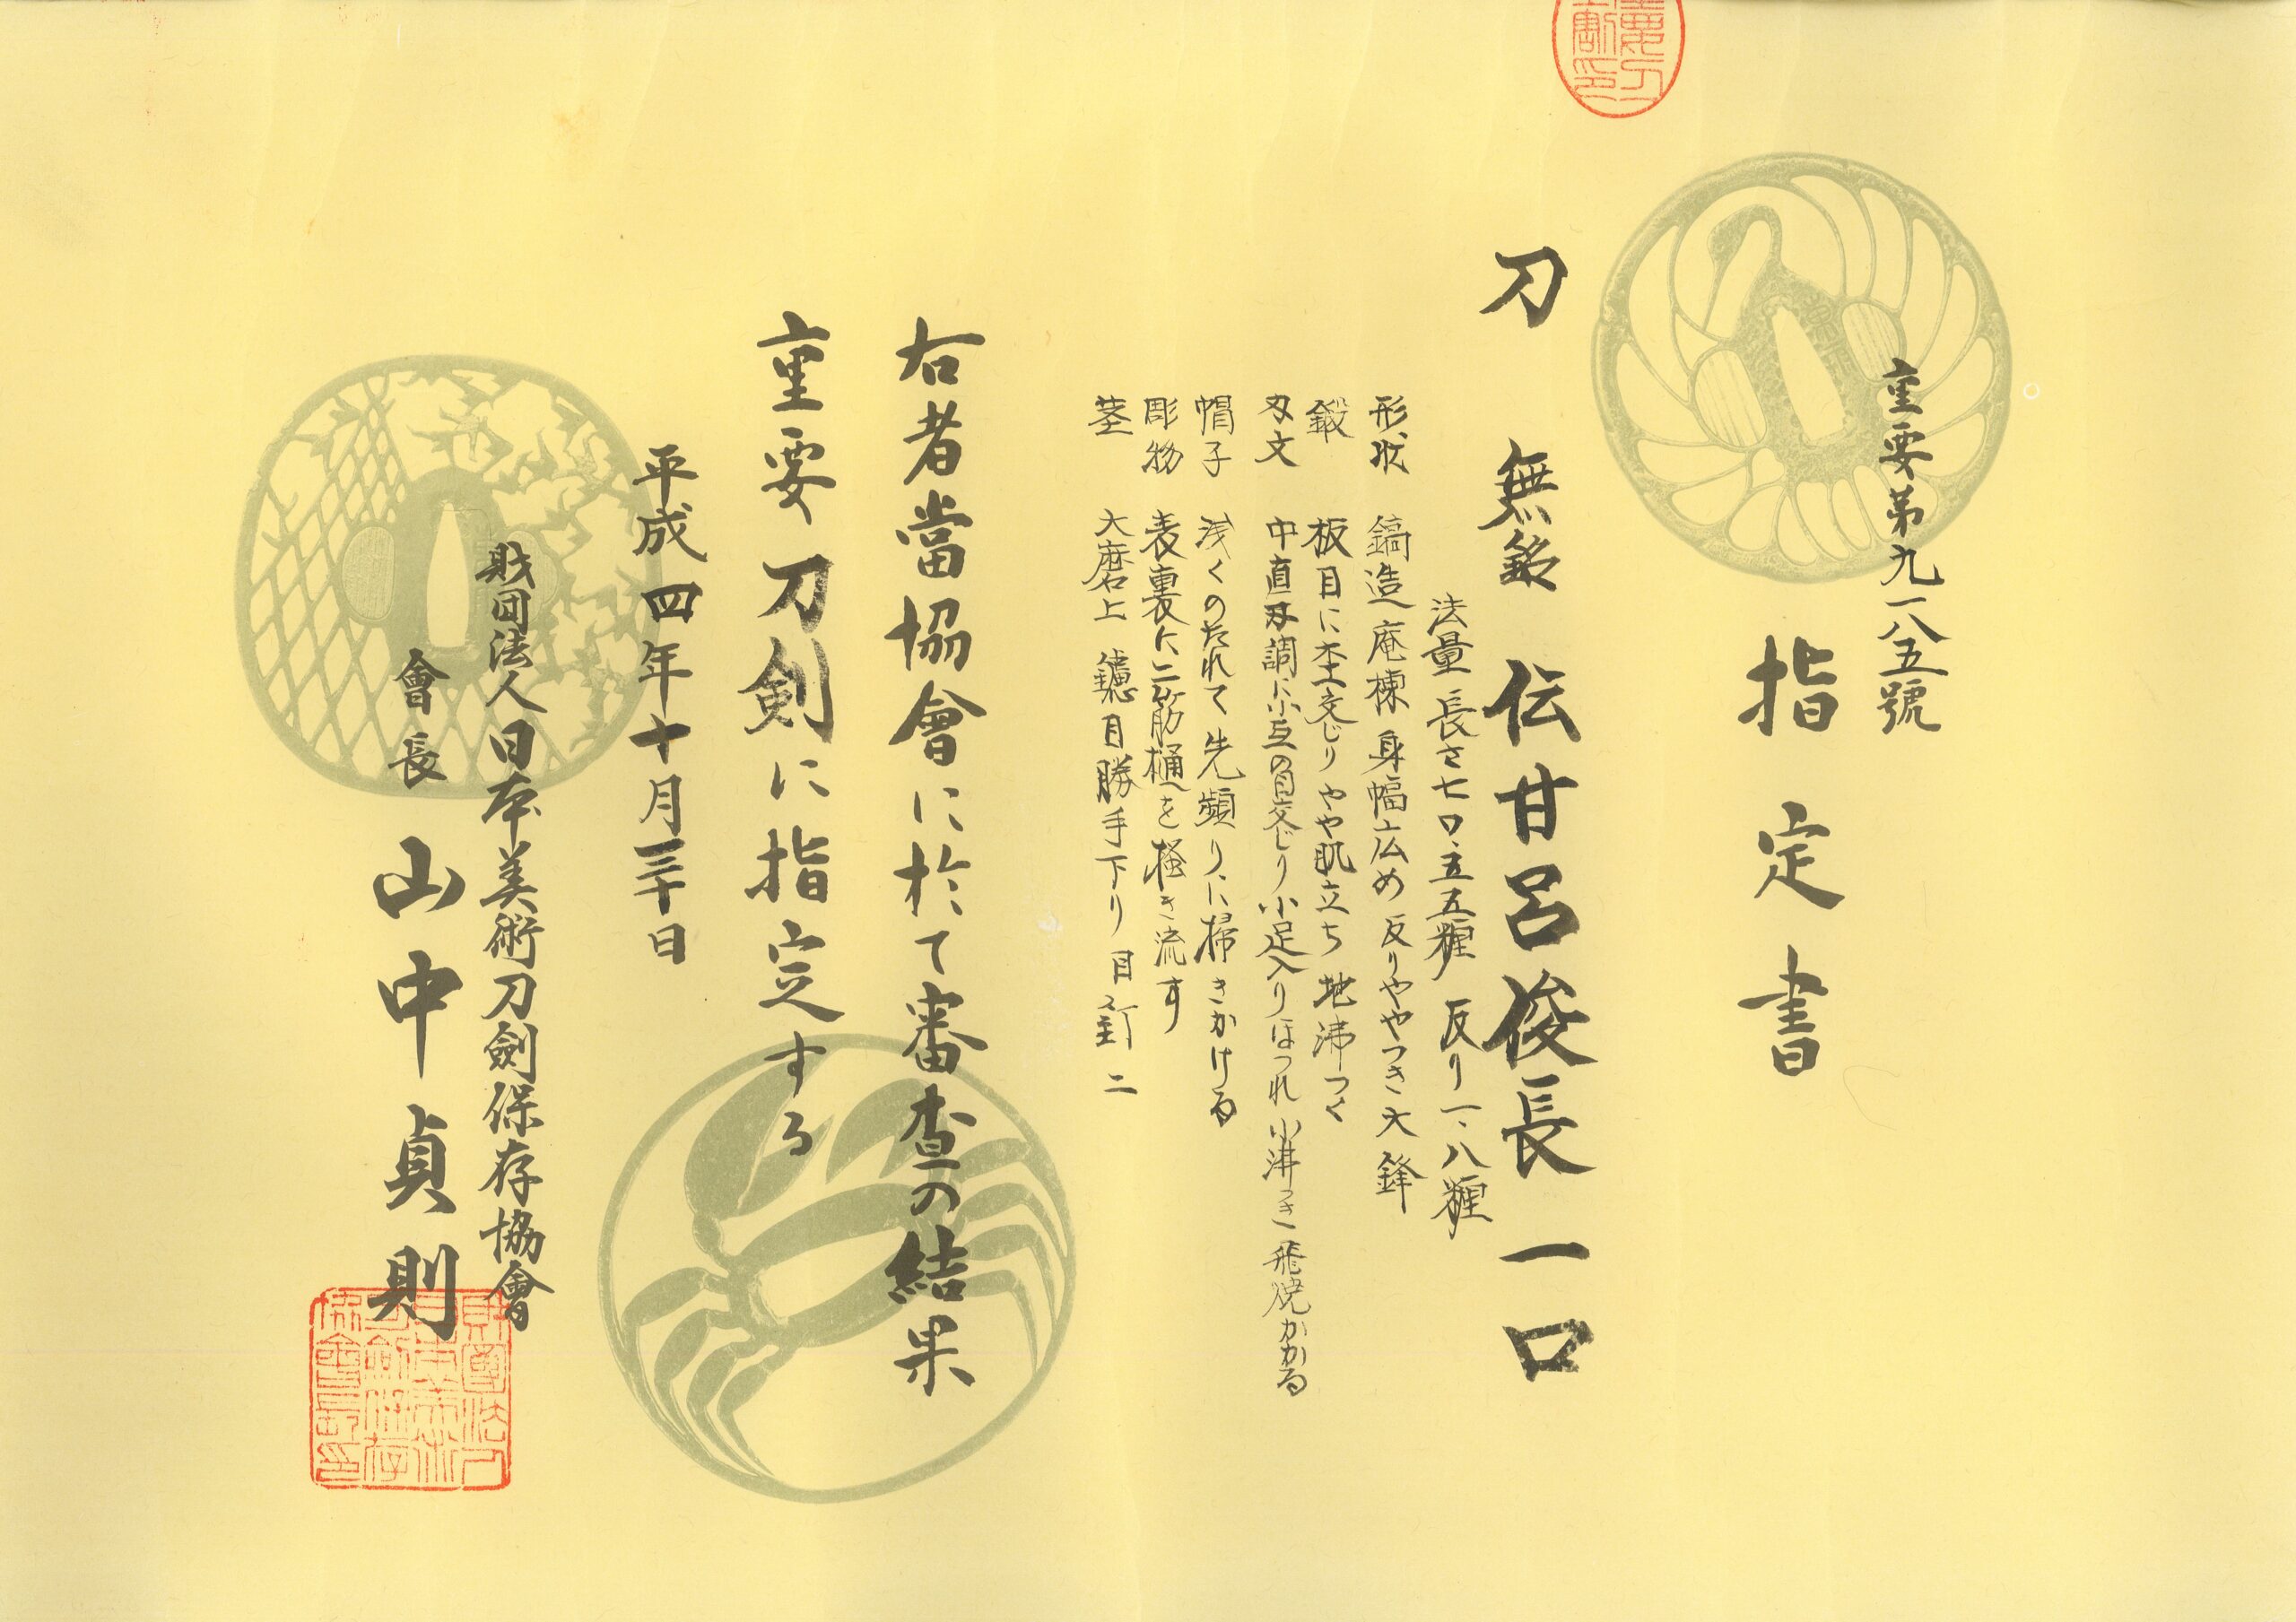 重要第九一八五號
指定書
刀 無銘 伝甘呂俊長 一口
法量 長さ七〇、五五糎 反り一、八糎
形状 鎬造 庵棟 身幅広め 反りややつき 大鋒
鍛 板目に杢交じり やや肌立ち 地沸つく
刃文 中直刃調に小互の目交じり 小足入り ほつれ 小沸つき 飛焼かかる
帽子 浅くのたれて先頻りに掃きかける
彫物 表裏に二筋樋を掻き流す
茎 大磨上 鑢目勝手下り 目釘二
右者當協會に於て審査の結果
重要刀剣に指定する
平成四年十月三十日
財団法人日本美術刀劍保存協會
會長 山中貞則